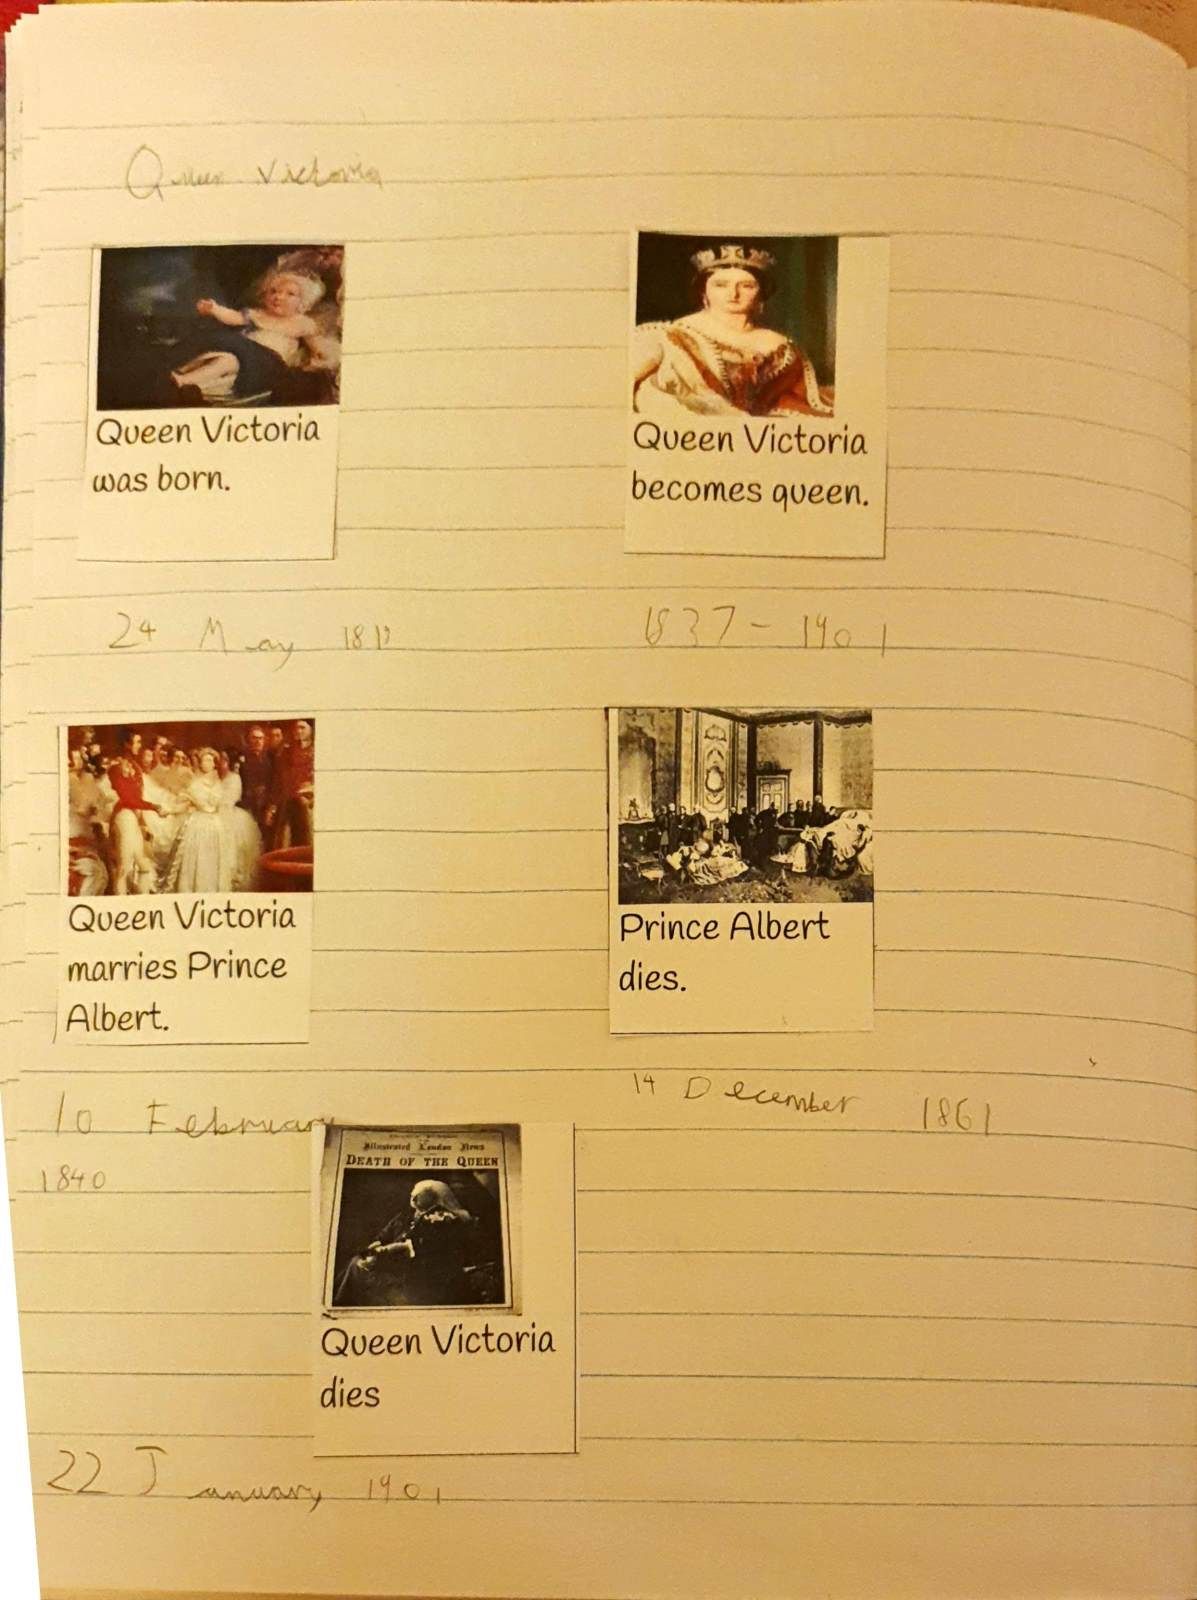 Queen Victoria
Queen Victoria
was born.
24 May 1819
Queen Victoria
becomes queen.
1837 - 1901
Queen Victoria
marries Prince
Albert.
10 February
1840
Prince Albert
dies.
14 December 1861
Illustrated London News
DEATH OF THE QUEEN
Queen Victoria
dies
22 January 1901